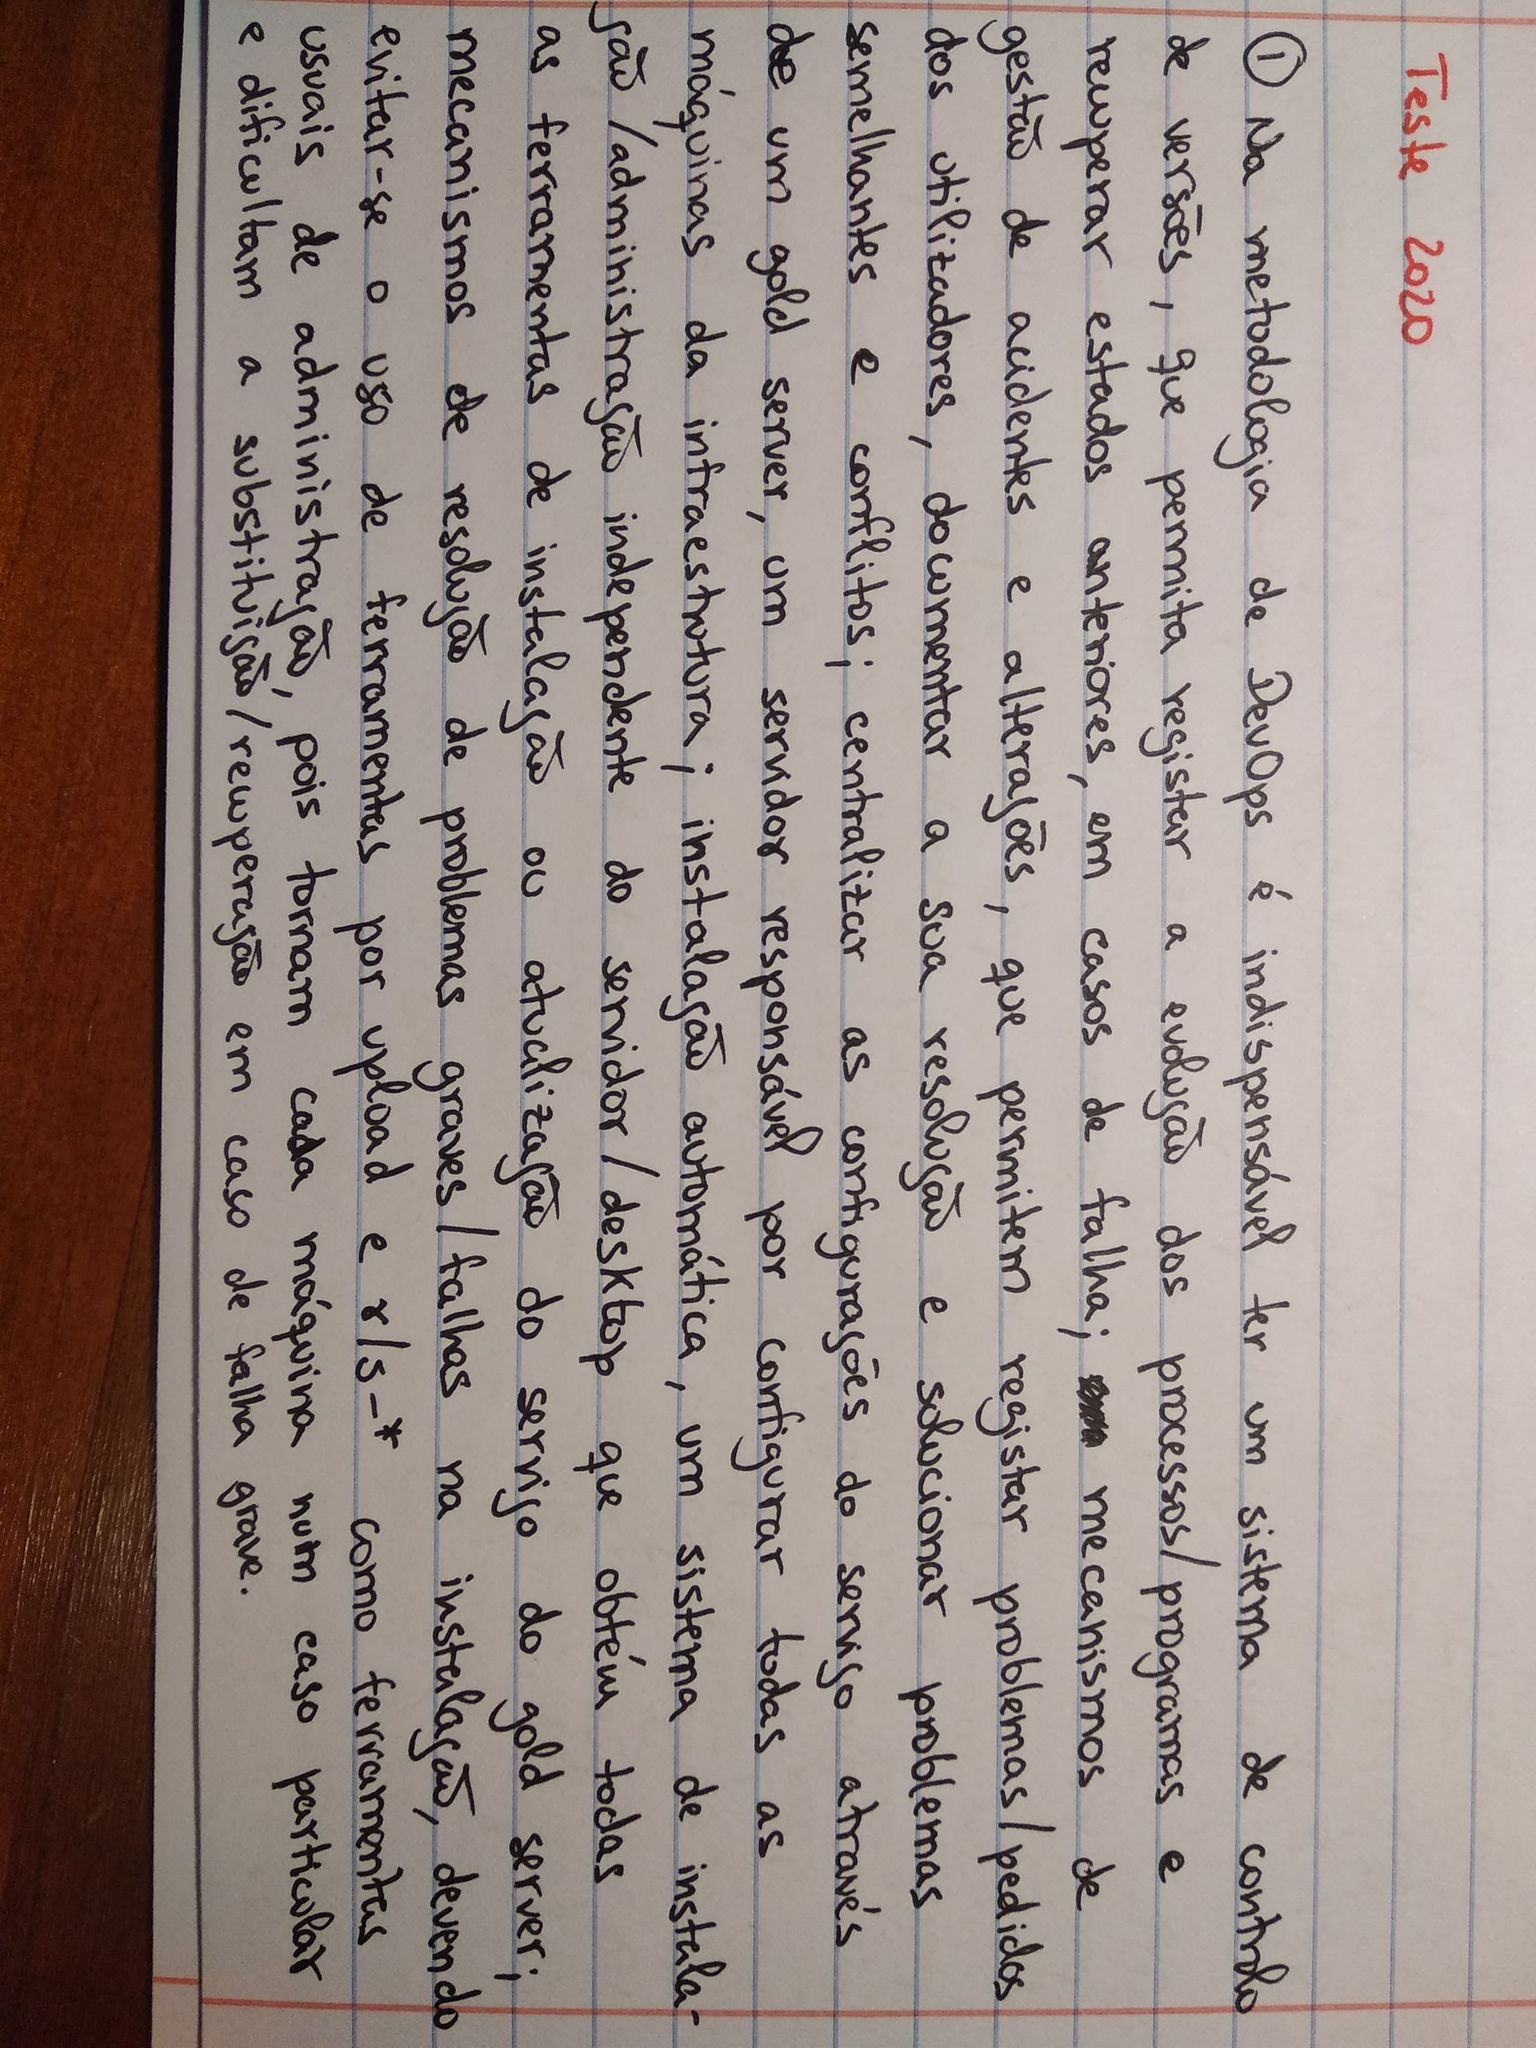 Teste 2020
① Na metodologia de DevOps é indispensável ter um sistema de controlo
de versões, que permita registar a evolução dos processos/programas e
recuperar estados anteriores, em casos de falha; mecanismos de
gestão de acidentes e alterações, que permitem registar problemas/pedidos
dos utilizadores, documentar a sua resolução e solucionar problemas
semelhantes e conflitos; centralizar as configurações do serviço através
de um gold server, um servidor responsável por configurar todas as
máquinas da infraestrutura; instalação automática, um sistema de instala-
ção/administração independente do servidor/desktop que obtém todas
as ferramentas de instalação ou atualização do serviço do gold server;
mecanismos de resolução de problemas graves/falhas na instalação, devendo
evitar-se o uso de ferramentas por upload e r/s-* como ferramentas
usuais de administração, pois tornam cada máquina num caso particular
e dificultam a substituição/recuperação em caso de falha grave.